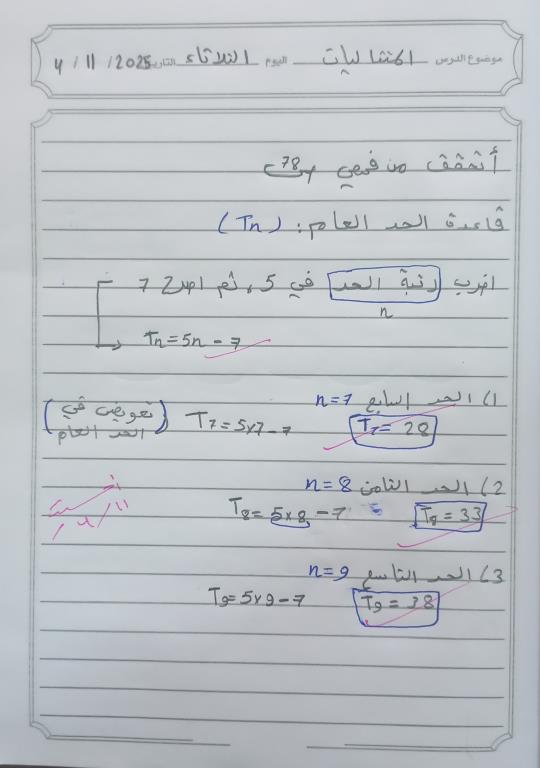 موضوع الدرس المتتاليات اليوم الثلاثاء التاريخ 4 / 11 / 2025
أتحقق من فهمي ص78
قاعدة الحد العام: (Tn)
اضرب رتبة الحد في 5، ثم اطرح 7
n
Tn = 5n - 7
1) الحد السابع n=7
T7 = 5x7 - 7 T7 = 28
(تعويض في الحد العام)
2) الحد الثامن n=8
T8 = 5x8 - 7 T8 = 33
أحسنت
11/4/
3) الحد التاسع n=9
T9 = 5x9 - 7 T9 = 38